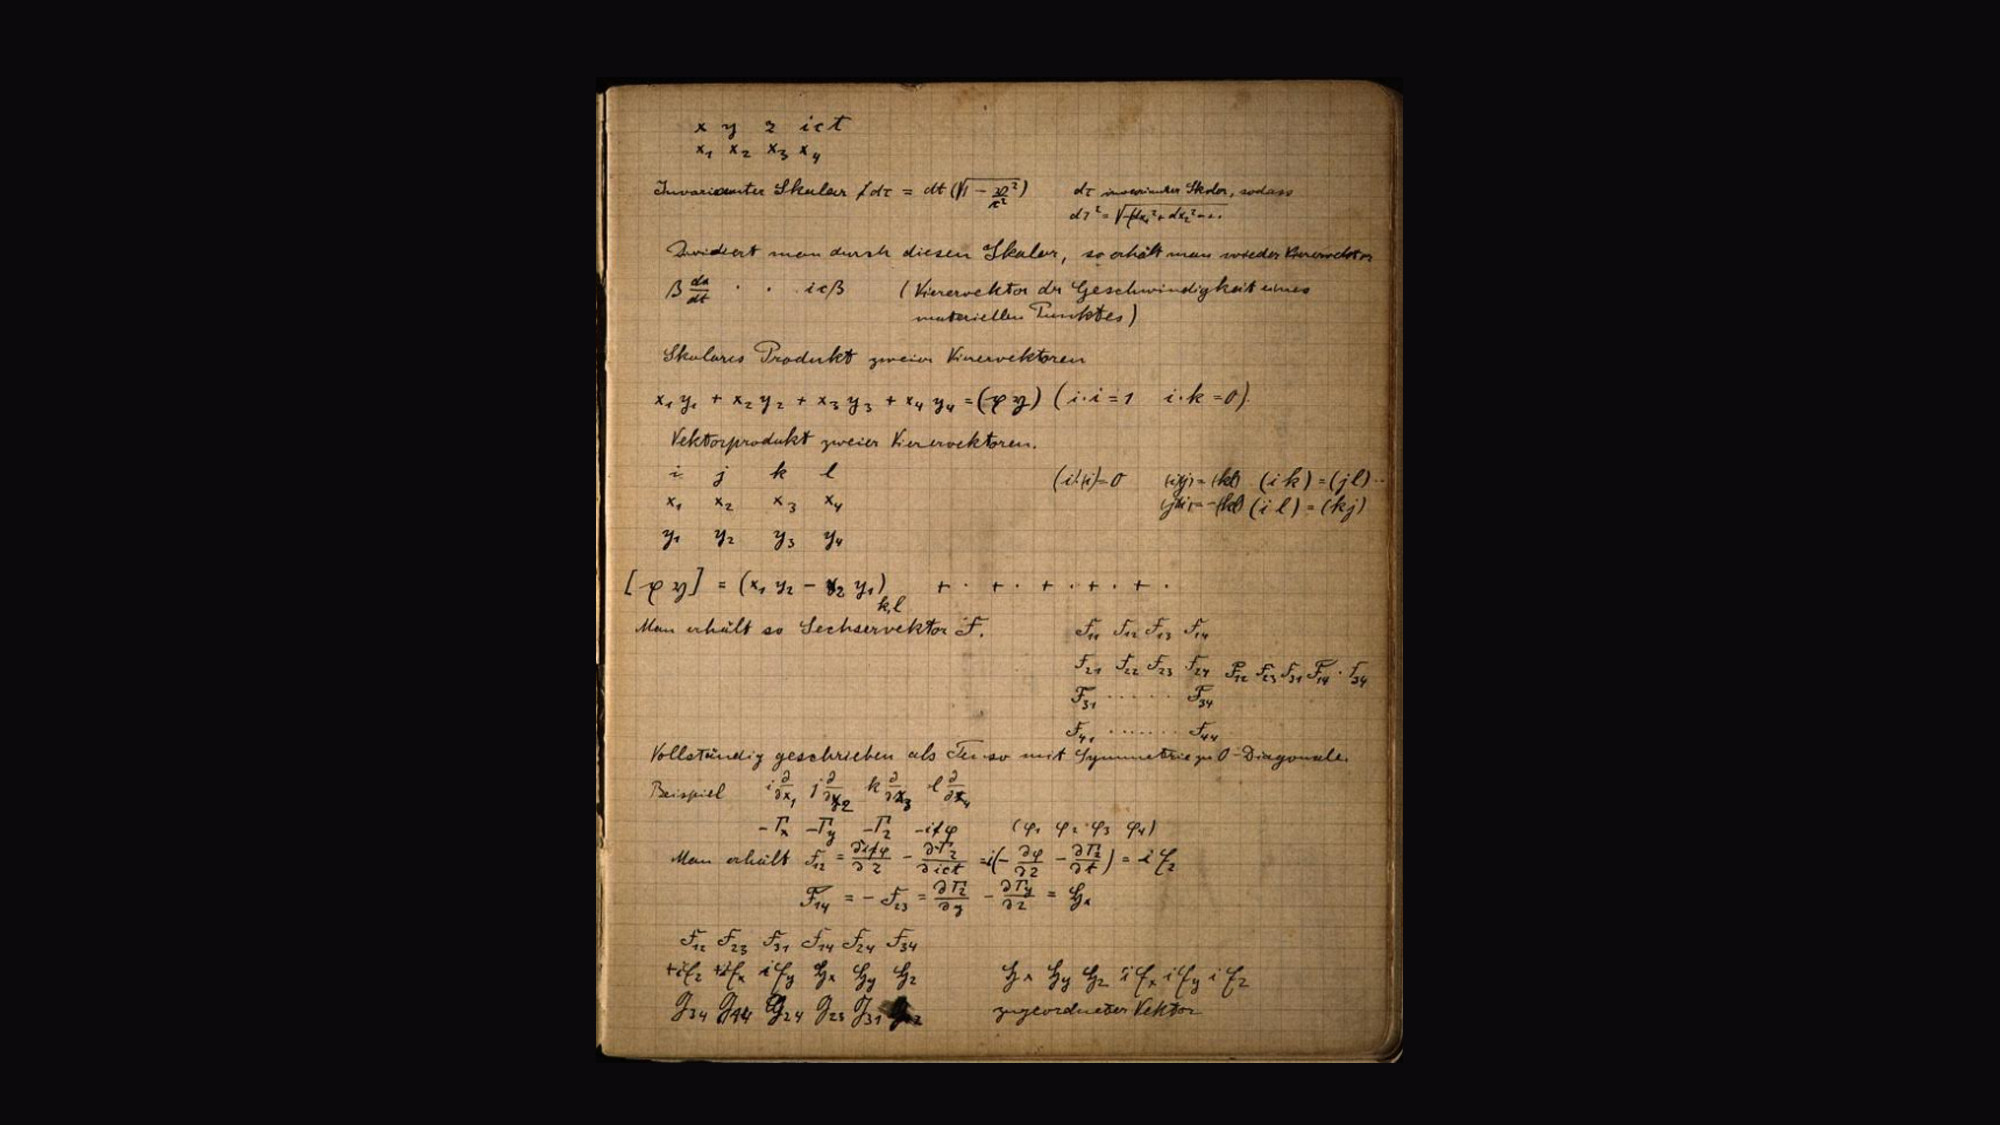 x y z ict
x₁ x₂ x₃ x₄
Invarianter Skalar dτ = dt (√1 − 𝔴²/c²)
dτ invarianter Skalar, sodass
dτ² = √−(dx₁² + dx₂² - - ·
Dividiert man durch diesen Skalar, so erhält man wieder Vierervektor
β dx/dt · · icβ (Vierervektor der Geschwindigkeit eines
materiellen Punktes)
Skalares Produkt zweier Vierervektoren
x₁ y₁ + x₂ y₂ + x₃ y₃ + x₄ y₄ = (𝔵 𝔶) (i·i = 1 i·k = 0).
Vektorprodukt zweier Vierervektoren.
i j k l
x₁ x₂ x₃ x₄
y₁ y₂ y₃ y₄
(i·i) = 0 (ij) = (kl) (i k) = (j l) ··
(ji) = −(kl) (i l) = (k j)
[𝔵 𝔶] = (x₁ y₂ − x₂ y₁)k,l + · + · + · + · + ·
Man erhält so Sechservektor F.
F₁₁ F₁₂ F₁₃ F₁₄
F₂₁ F₂₂ F₂₃ F₂₄ F₁₂ F₂₃ F₃₁ F₁₄ · F₃₄
F₃₁ · · · · · F₃₄
F₄₁ · · · · · · F₄₄
Vollständig geschrieben als mit Symmetrie zu 0-Diagonale.
Beispiel i ∂/∂x₁ j ∂/∂x₂ k ∂/∂x₃ l ∂/∂x₄
−Γx −Γy −Γz −iφ (φ₁ φ₂ φ₃ φ₄)
Man erhält F₁₂ = ∂iφ/∂z − ∂Γz/∂ict = i(− ∂φ/∂z − ∂Γz/∂t) = i 𝔈z
F₁₄ = − F₂₃ = ∂Γz/∂y − ∂Γy/∂z = ℌx
F₁₂ F₂₃ F₃₁ F₁₄ F₂₄ F₃₄
+i𝔈z +i𝔈x i𝔈y ℌx ℌy ℌz
ℌx ℌy ℌz i𝔈x i𝔈y i𝔈z
G₃₄ G₁₄ G₂₄ G₂₃ G₃₁
zugeordneter Vektor